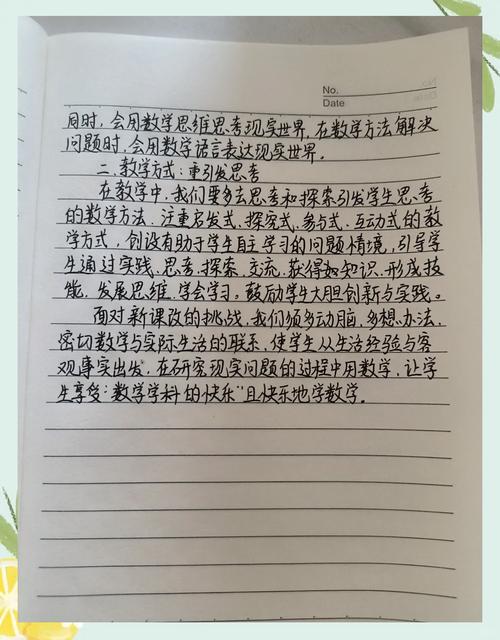 No.
Date
同时,会用数学思维思考现实世界,在数学方法解决
问题时,会用数学语言表达现实世界。
二、教学方式:重引发思考
在教学中,我们要多去思考和探索引发学生思考
的数学方法,注重启发式、探究式、参与式、互动式的教
学方式,创设有助于学生自主学习的问题情境,引导学
生通过实践、思考、探索、交流,获得知识,形成技
能,发展思维,学会学习。鼓励学生大胆创新与实践。
面对新课改的挑战,我们须多动脑,多想办法,
密切数学与实际生活的联系,使学生从生活经验与客
观事实出发,在研究现实问题的过程中用数学,让学
生享受“数学学科的快乐”且快乐地学数学。